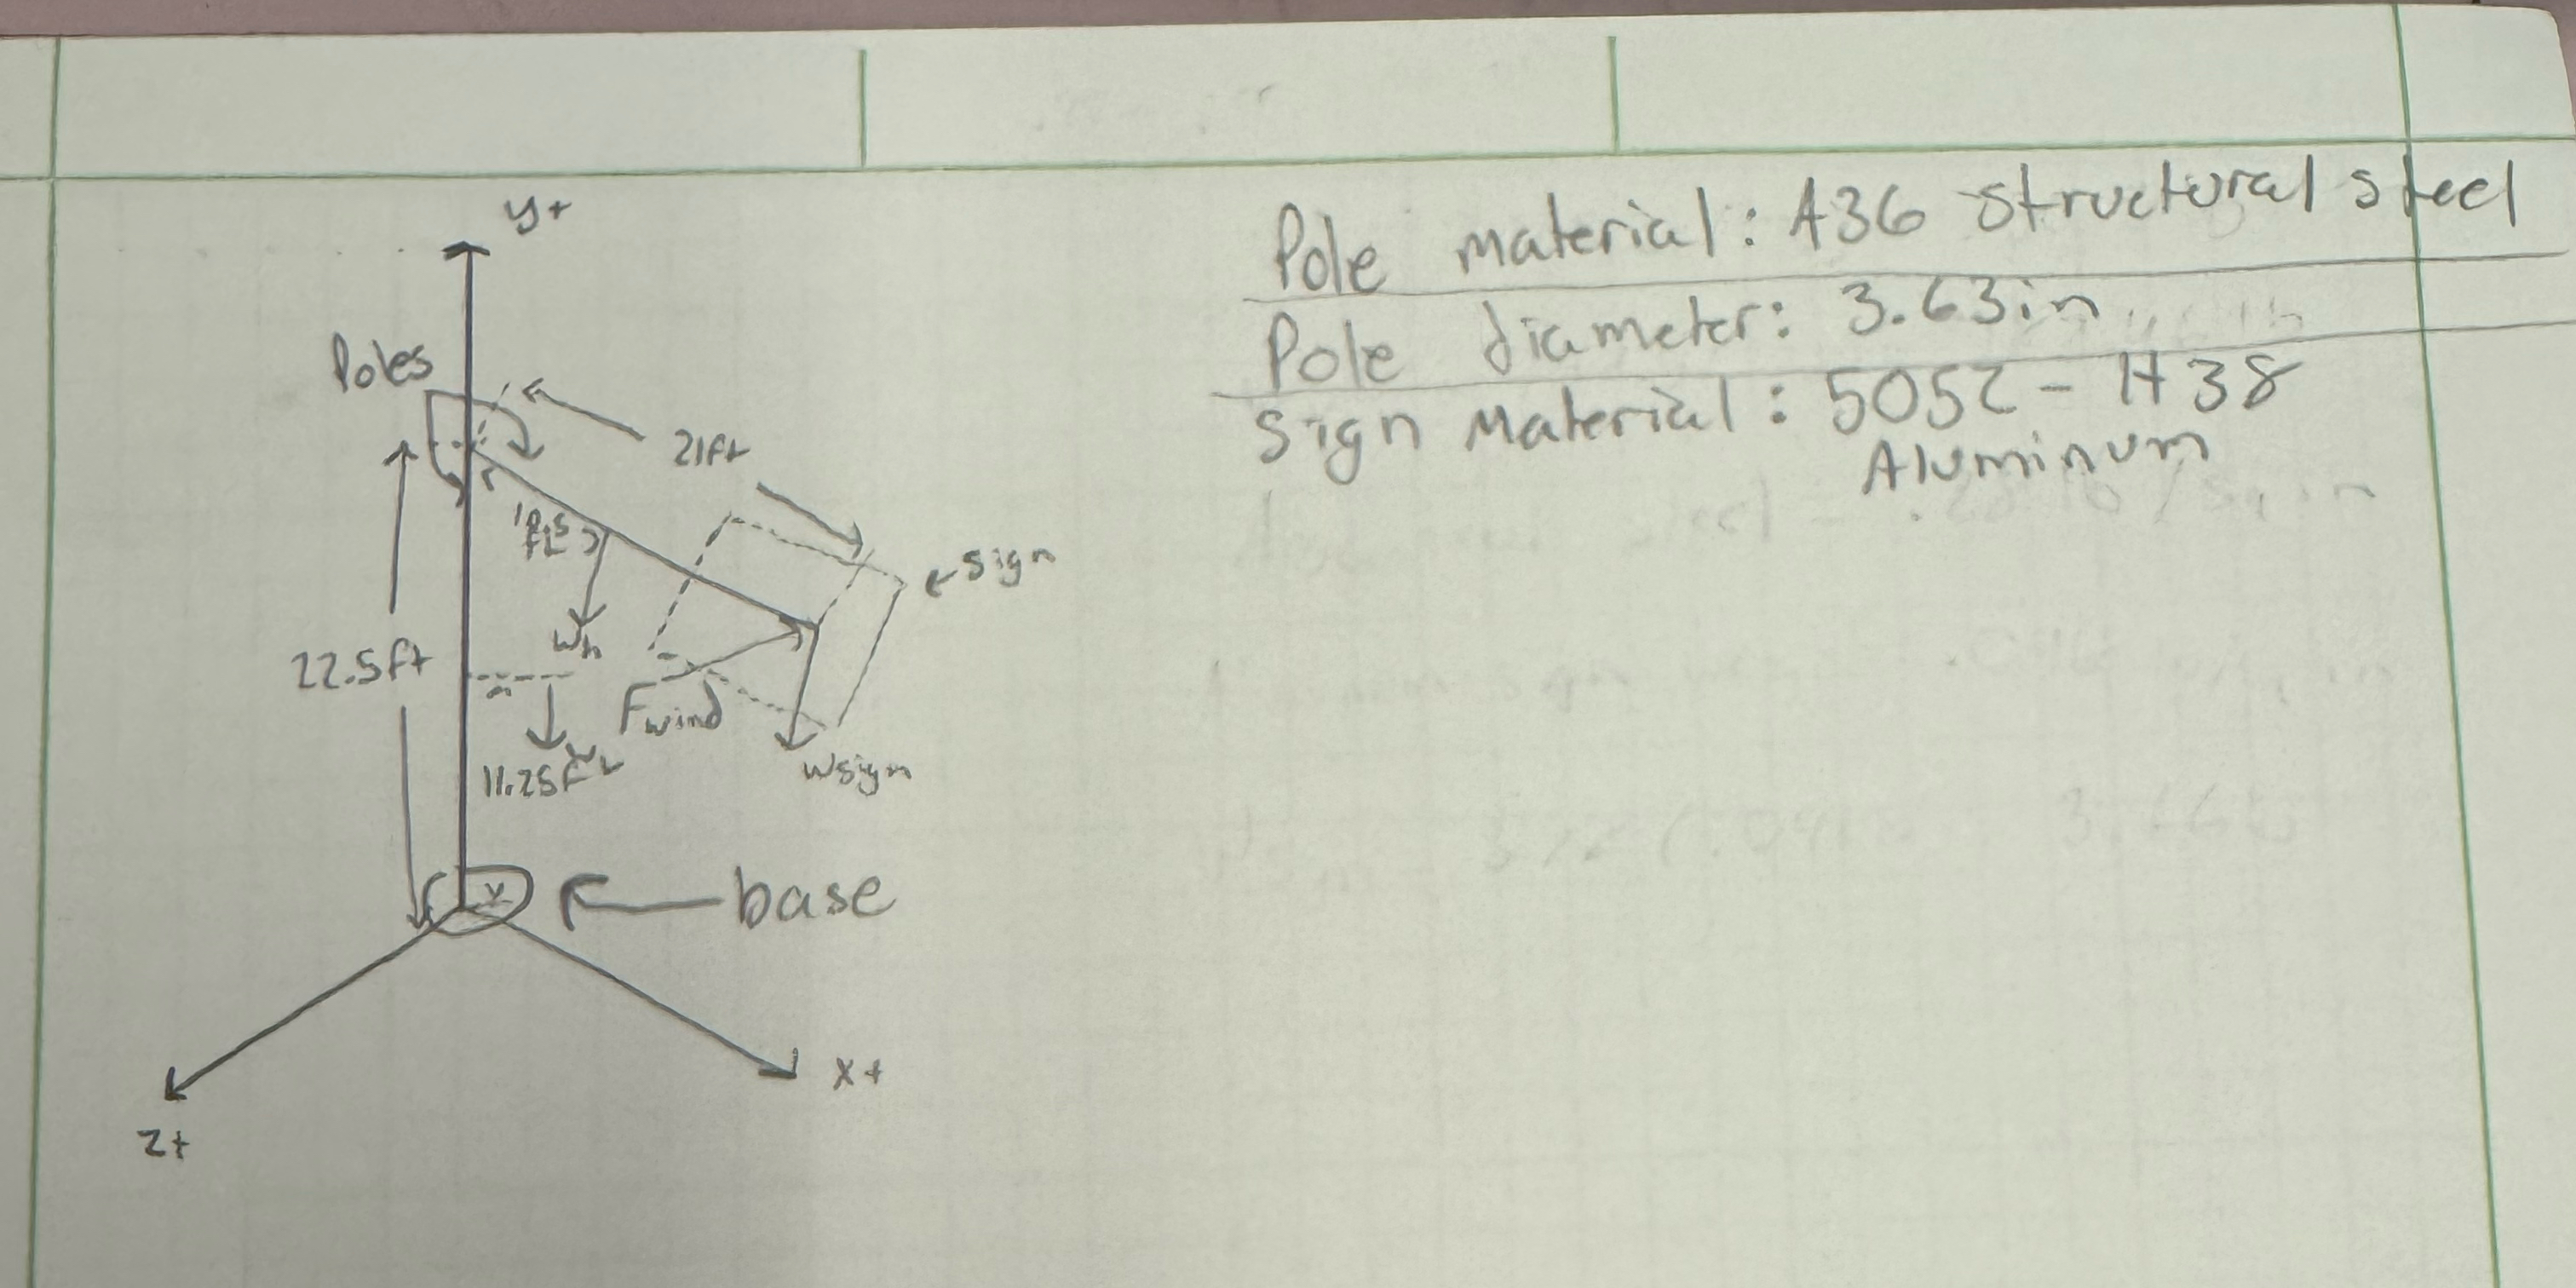 y+
Pole material: A36 structural steel
Pole diameter: 3.63in
Sign Material: 5052-H38
Aluminum
Poles
21ft
sign
Wh
22.5ft
Fwind
11.25ft
Wsign
base
x+
z+